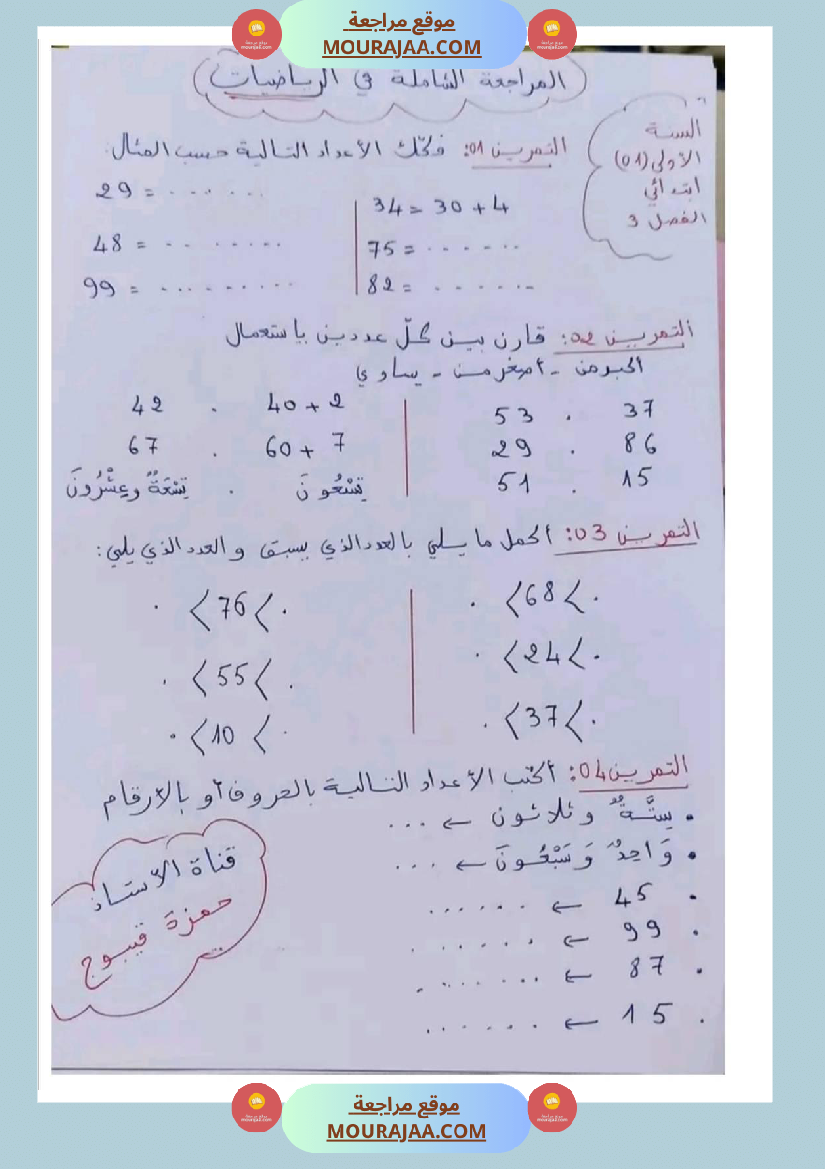 موقع مراجعة
MOURAJAA.COM
المراجعة الشاملة في الرياضيات
السنة
الأولى (01)
ابتدائي
الفصل 3
التمرين 01: فكّك الأعداد التالية حسب المثال.
34 = 30 + 4
29 = . . . . . .
75 = . . . . . .
48 = . . . . . . .
82 = . . . . . .
99 = . . . . . . . . .
التمرين 02: قارن بين كلّ عددين باستعمال
أكبر من - أصغر من - يساوي
37 . 53
40 + 2 . 42
86 . 29
60 + 7 . 67
15 . 51
تِسْعُونَ . تِسْعَةٌ وعِشْرُونَ
التمرين 03: أكمل ما يلي بالعدد الذي يسبق والعدد الذي يلي:
. 〈 68 〈 .
. 〈 76 〉 .
. 〈 24 〈 .
. 〈 55 〈 .
. 〈 37 〉 .
. 〈 10 〈 .
التمرين 04: أكتب الأعداد التالية بالحروف أو بالأرقام
• سِتَّةٌ وثلاثون ← . . .
• وَاحِدٌ وَسَبْعُونَ ← . . .
• 45 ← . . . . . .
• 99 ← . . . . . .
• 87 ← . . . . . .
• 15 ← . . . . . .
قناة الأستاذ
حمزة قيبوج
موقع مراجعة
MOURAJAA.COM